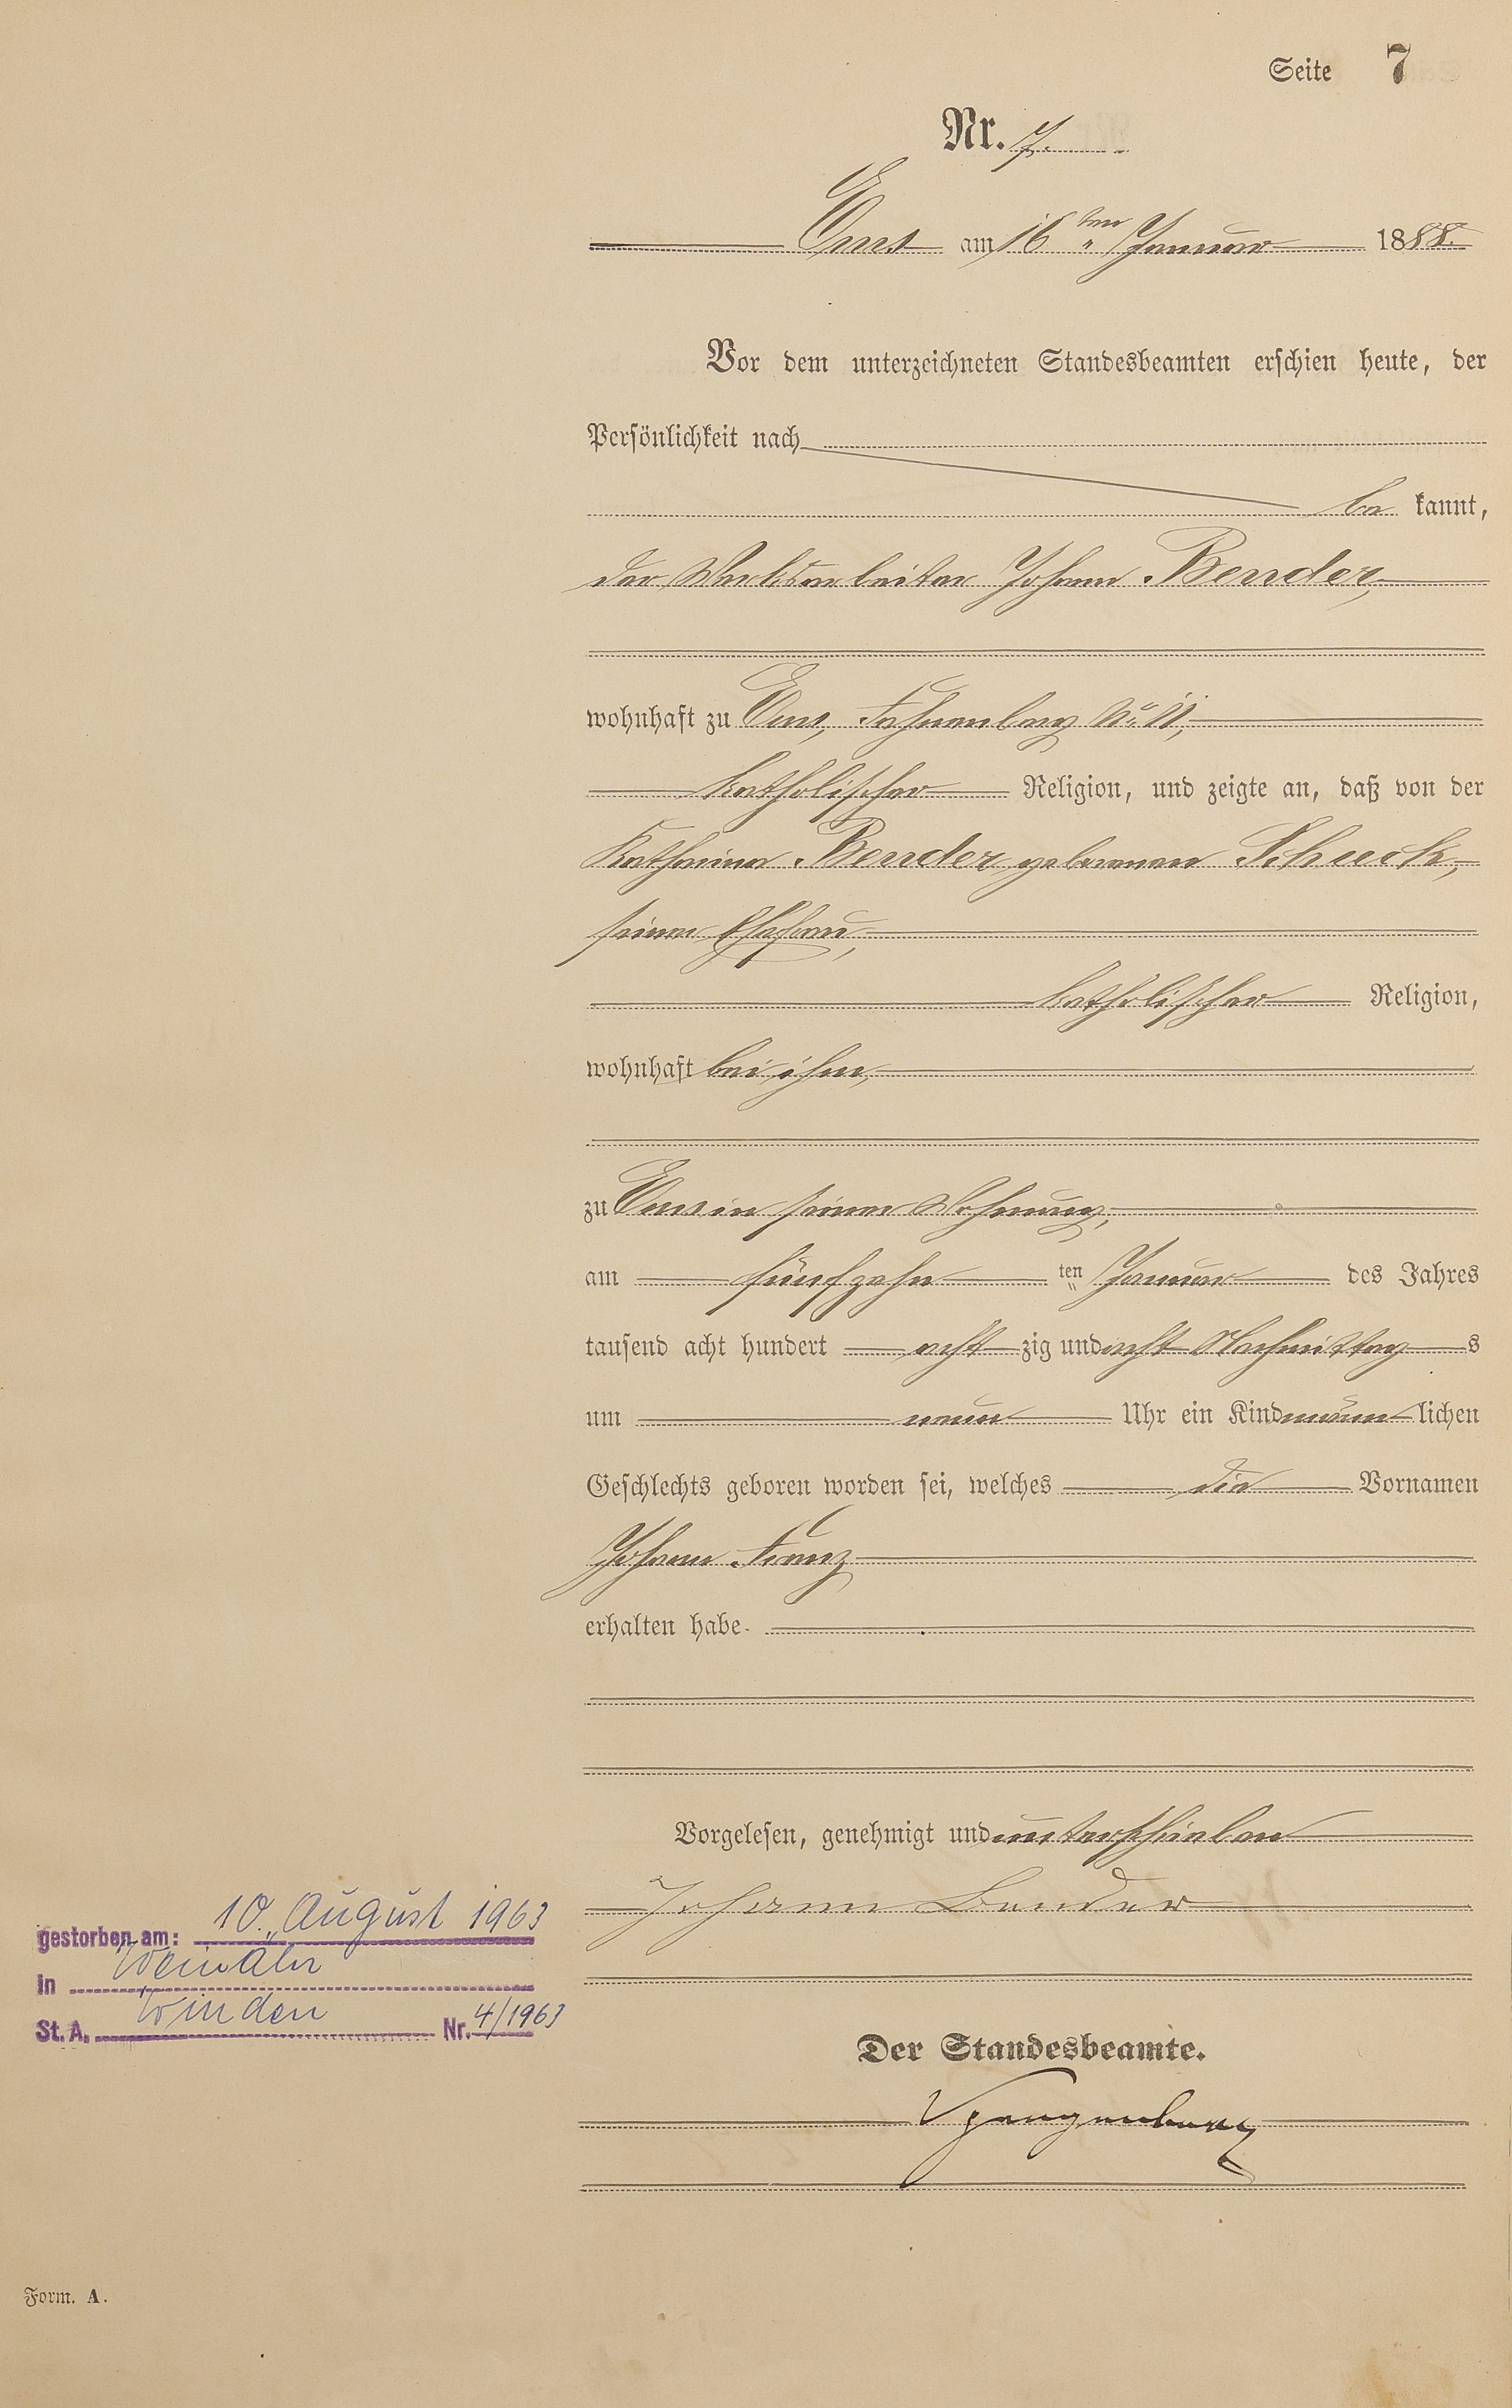 Seite 7
Nr. 7.
Ems am 16ten Januar 1888.
Vor dem unterzeichneten Standesbeamten erschien heute, der
Persönlichkeit nach
be kannt,
der Werksarbeiter Johann Bender,
wohnhaft zu Ems, No. 11,
katholischer Religion, und zeigte an, daß von der
Katharina Bender geborenen Scheech,
seiner Ehefrau,
katholischer Religion,
wohnhaft bei ihm,
zu Ems in seiner Wohnung,
am fünfzehn ten Januar des Jahres
tausend acht hundert acht zig und acht Nachmittag s
um neun Uhr ein Kind männ lichen
Geschlechts geboren worden sei, welches die Vornamen
Johann Franz
erhalten habe.
Vorgelesen, genehmigt und unterschrieben
Johann Bender
gestorben am: 10. August 1963
in Weinähr
St. A. Winden Nr. 4/1963
Der Standesbeamte.
Form. A.